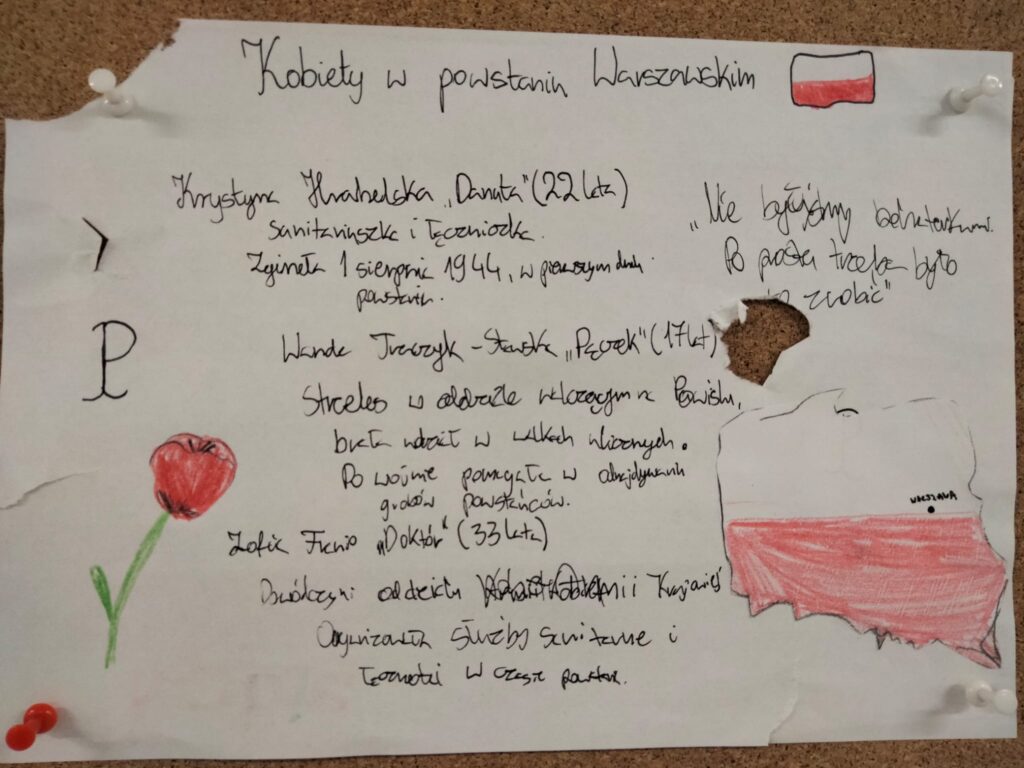 Kobiety w powstaniu Warszawskim
Krystyna Krahelska „Danuta" (22 lata)
Sanitariuszka i łączniczka.
Zginęła 1 sierpnia 1944, w pierwszym dniu
powstania.
„Nie byłyśmy bohaterkami.
Po prostu trzeba było
to zrobić"
Wanda Traczyk-Stawska „Pączek" (17 lat)
Strzelec w oddziale walczącym na Powiślu,
brała udział w walkach ulicznych.
Po wojnie pomagała w odnajdywaniu
grobów powstańców.
Zofia Franio „Doktór" (33 lata)
Dowódczyni oddziału Armii Krajowej
Organizowała służby sanitarne i
łączności w czasie powstania.
WARSZAWA
P